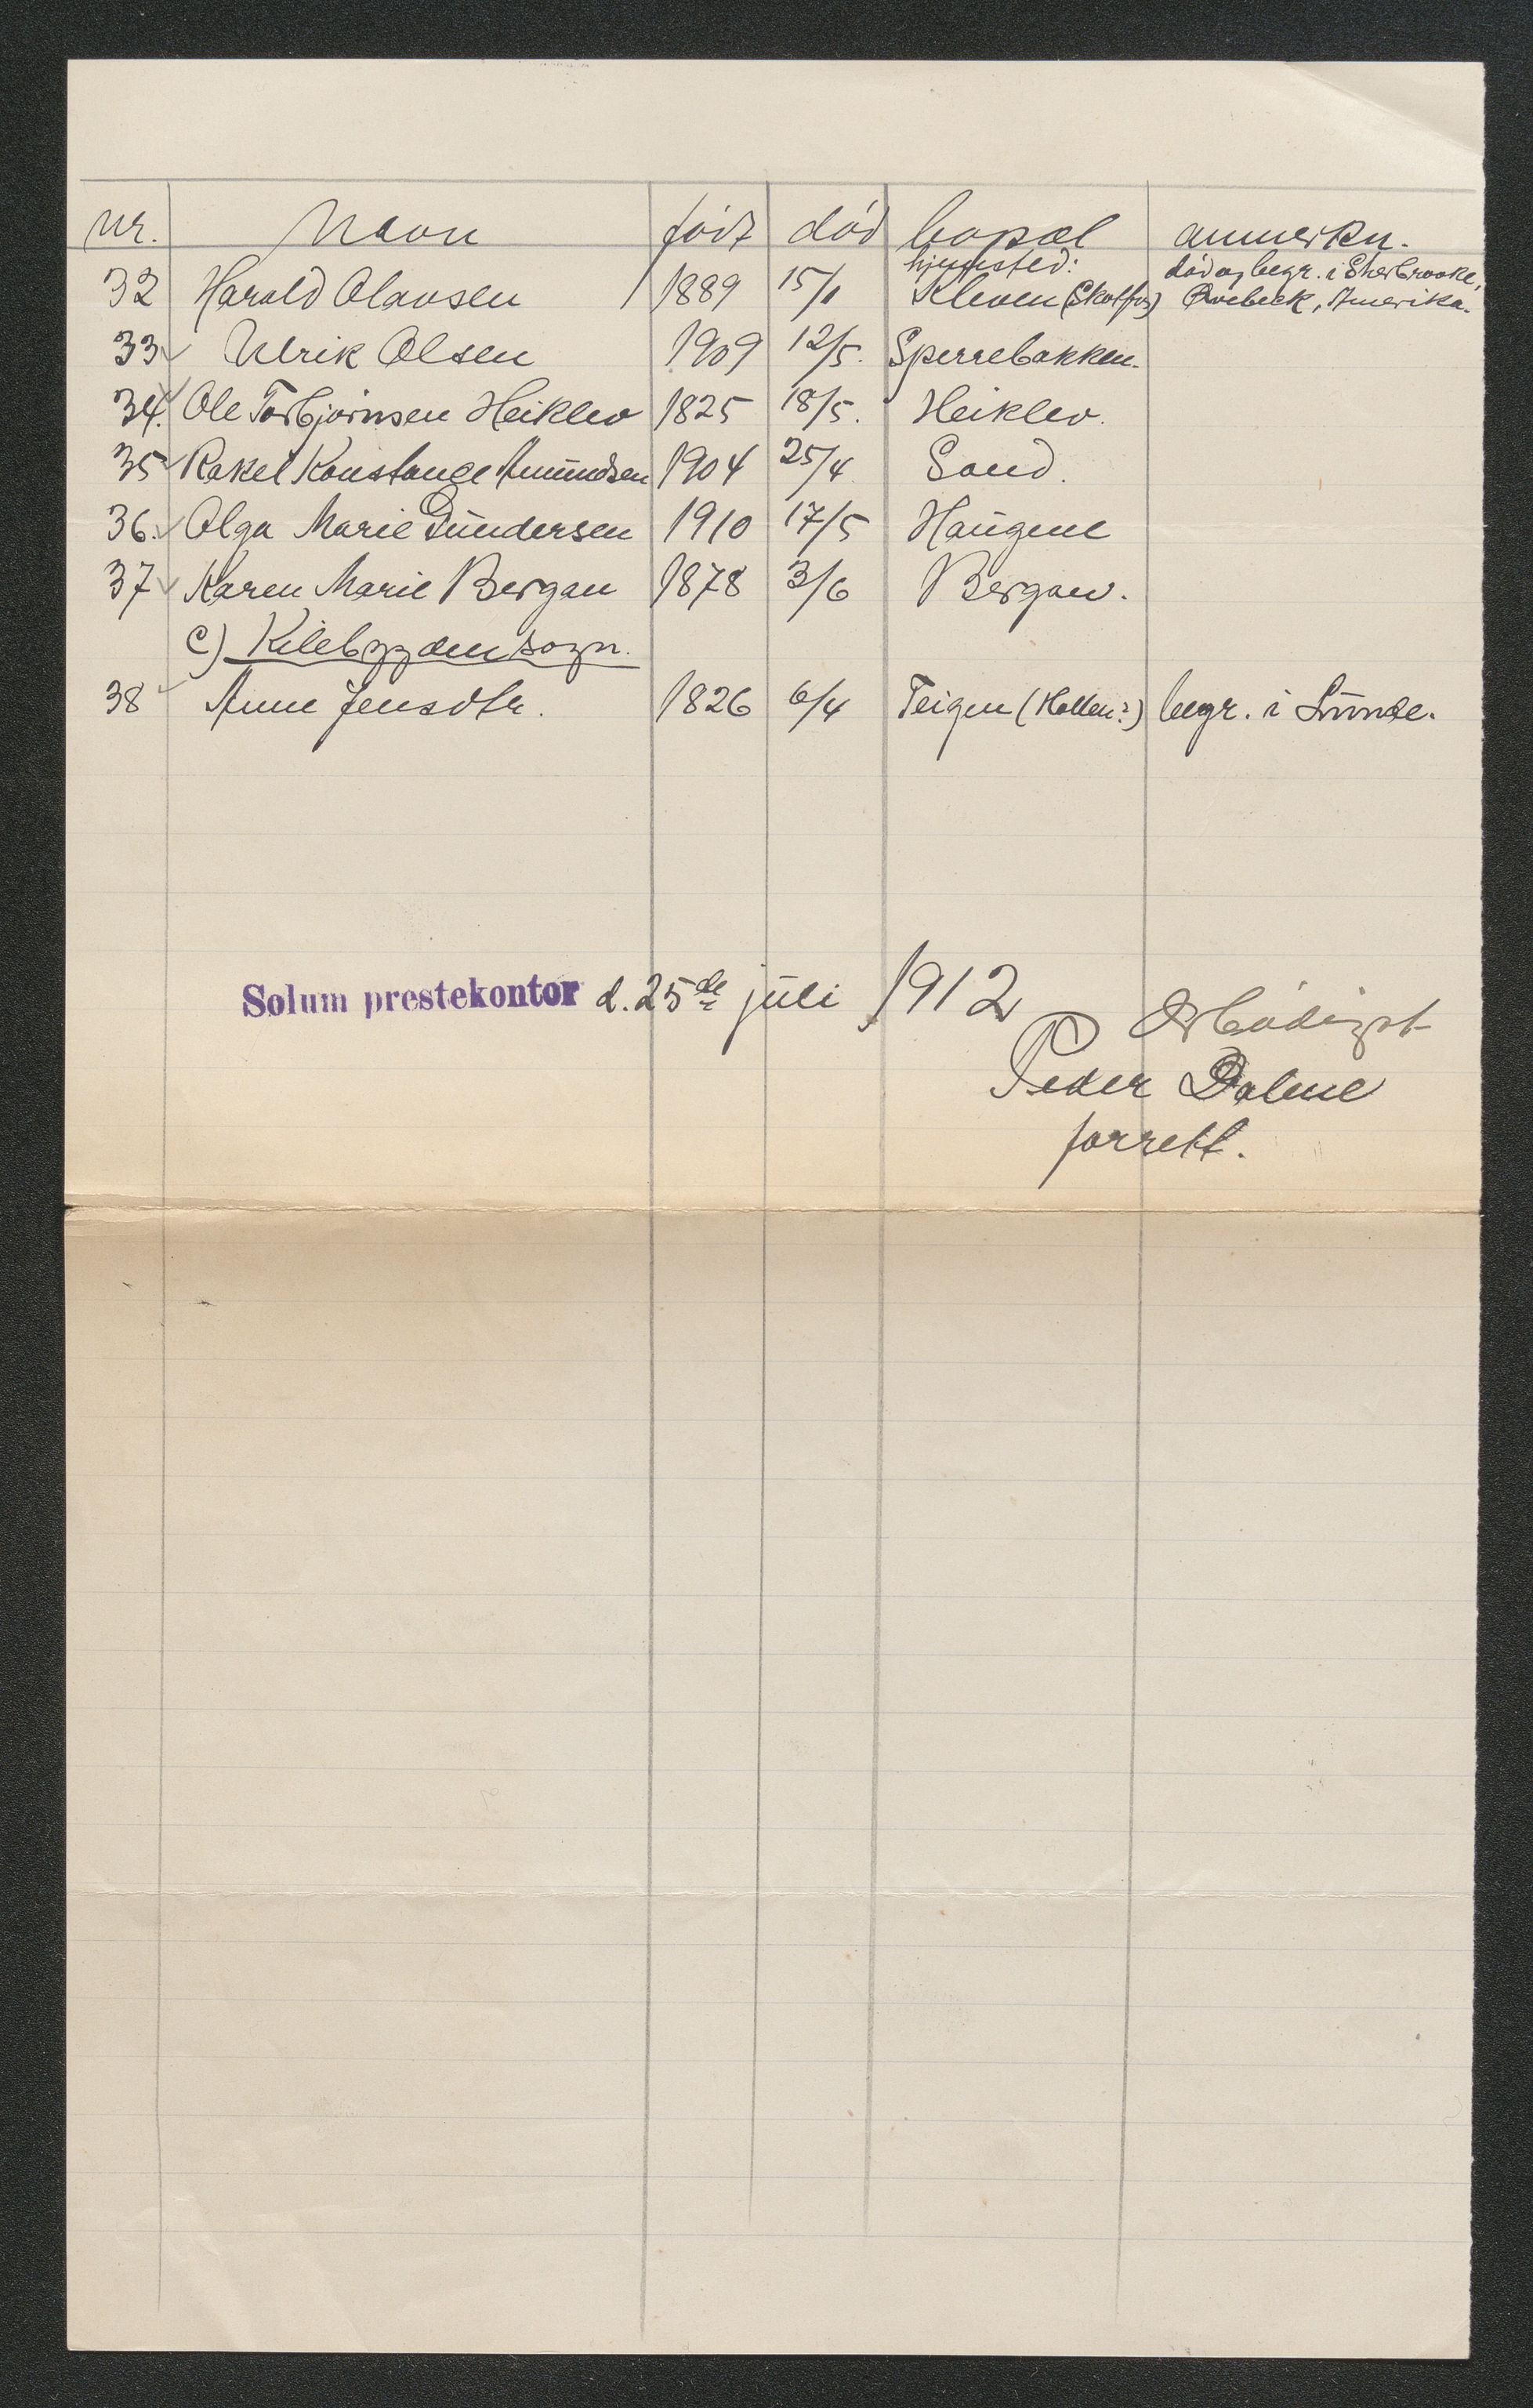 nr. Navn født død bopæl anmerkn.
32 Harald Olausen 1889 15/1 hjemsted: Kleven (Skotfos) død og begr. i Sherbrooke, Qvebeck, Amerika.
33 Ulrik Olsen 1909 12/5. Sperrebakken.
34. Ole Torbjørnsen Heiklev 1825 18/5. Heiklev.
35 Rakel Konstance Amundsen 1904 25/4 Sand.
36. Olga Marie Gundersen 1910 17/5 Haugene
37 Karen Marie Bergan 1878 3/6 Bergan.
c) Kilebygdens sogn.
38 Anne Jensdtr. 1826 6/4 Teigen (Hollen?) begr. i Lunde.
Solum prestekontor d. 25de juli 1912
Ærbødigst
Peder Dalene
forrett.